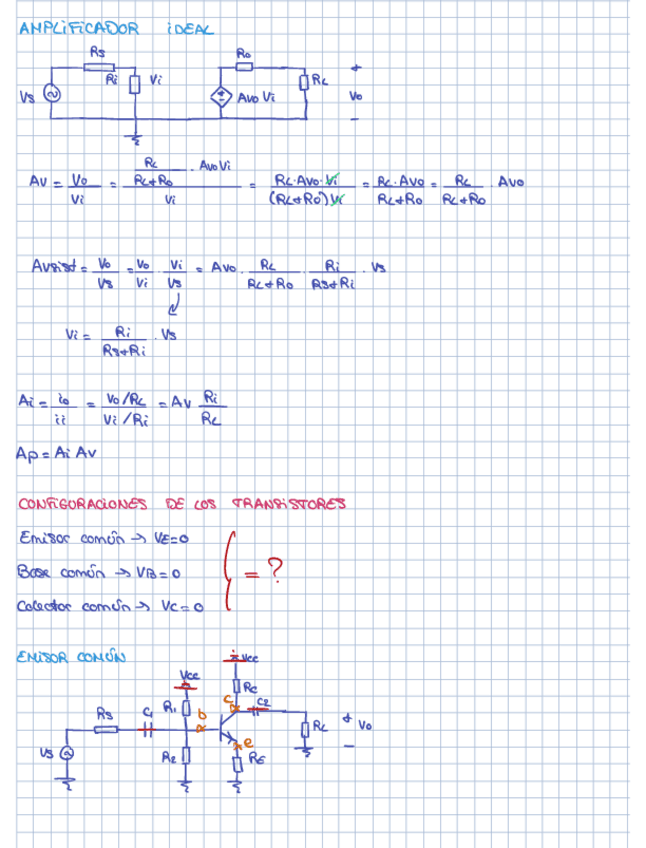 AMPLIFICADOR IDEAL
Rs Ro
Ri Vi RL +
Vs Avo Vi Vo
-
Av = Vo/Vi = (RL/(RL+Ro) · Avo Vi)/Vi = RL·Avo·Vi/((RL+Ro)Vi) = RL·Avo/(RL+Ro) = RL/(RL+Ro) · Avo
Avsist = Vo/Vs = Vo/Vi · Vi/Vs = Avo · RL/(RL+Ro) · Ri/(Rs+Ri) · Vs
Vi = Ri/(Rs+Ri) · Vs
Ai = io/ii = (Vo/RL)/(Vi/Ri) = Av Ri/RL
Ap = Ai Av
CONFIGURACIONES DE LOS TRANSISTORES
Emisor común → VE=0
Base común → VB=0
= ?
Colector común → VC=0
EMISOR COMÚN
Vcc
Vcc
RC
Rs C1 R1 b c C2
RL + Vo
-
Vs R2 e RE